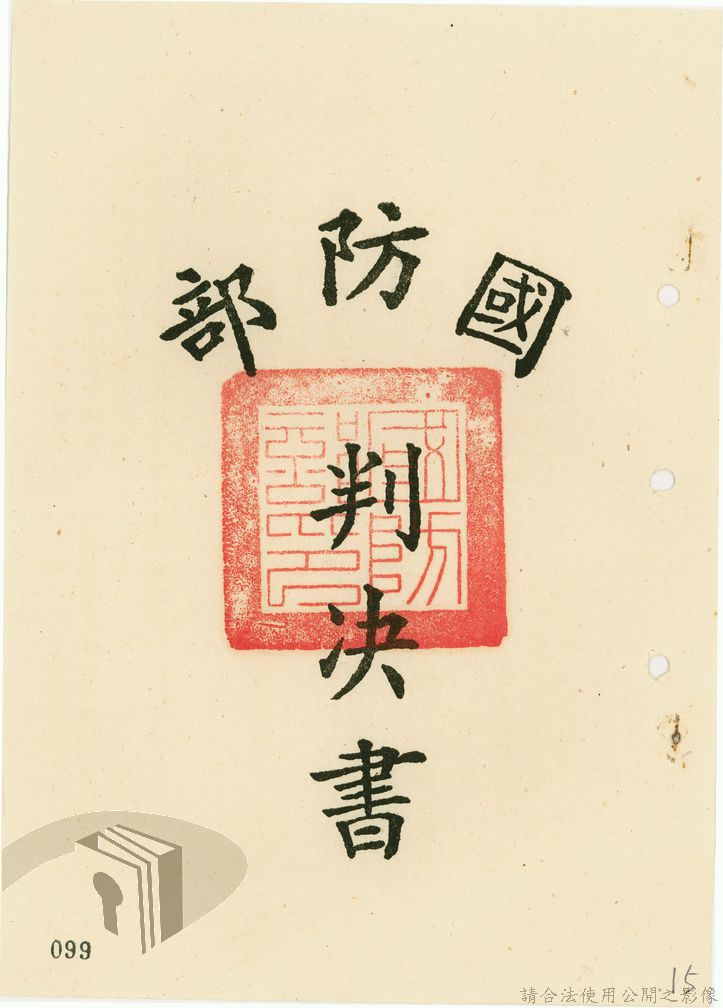 國防部
判決書
099
15
請合法使用公開之影像